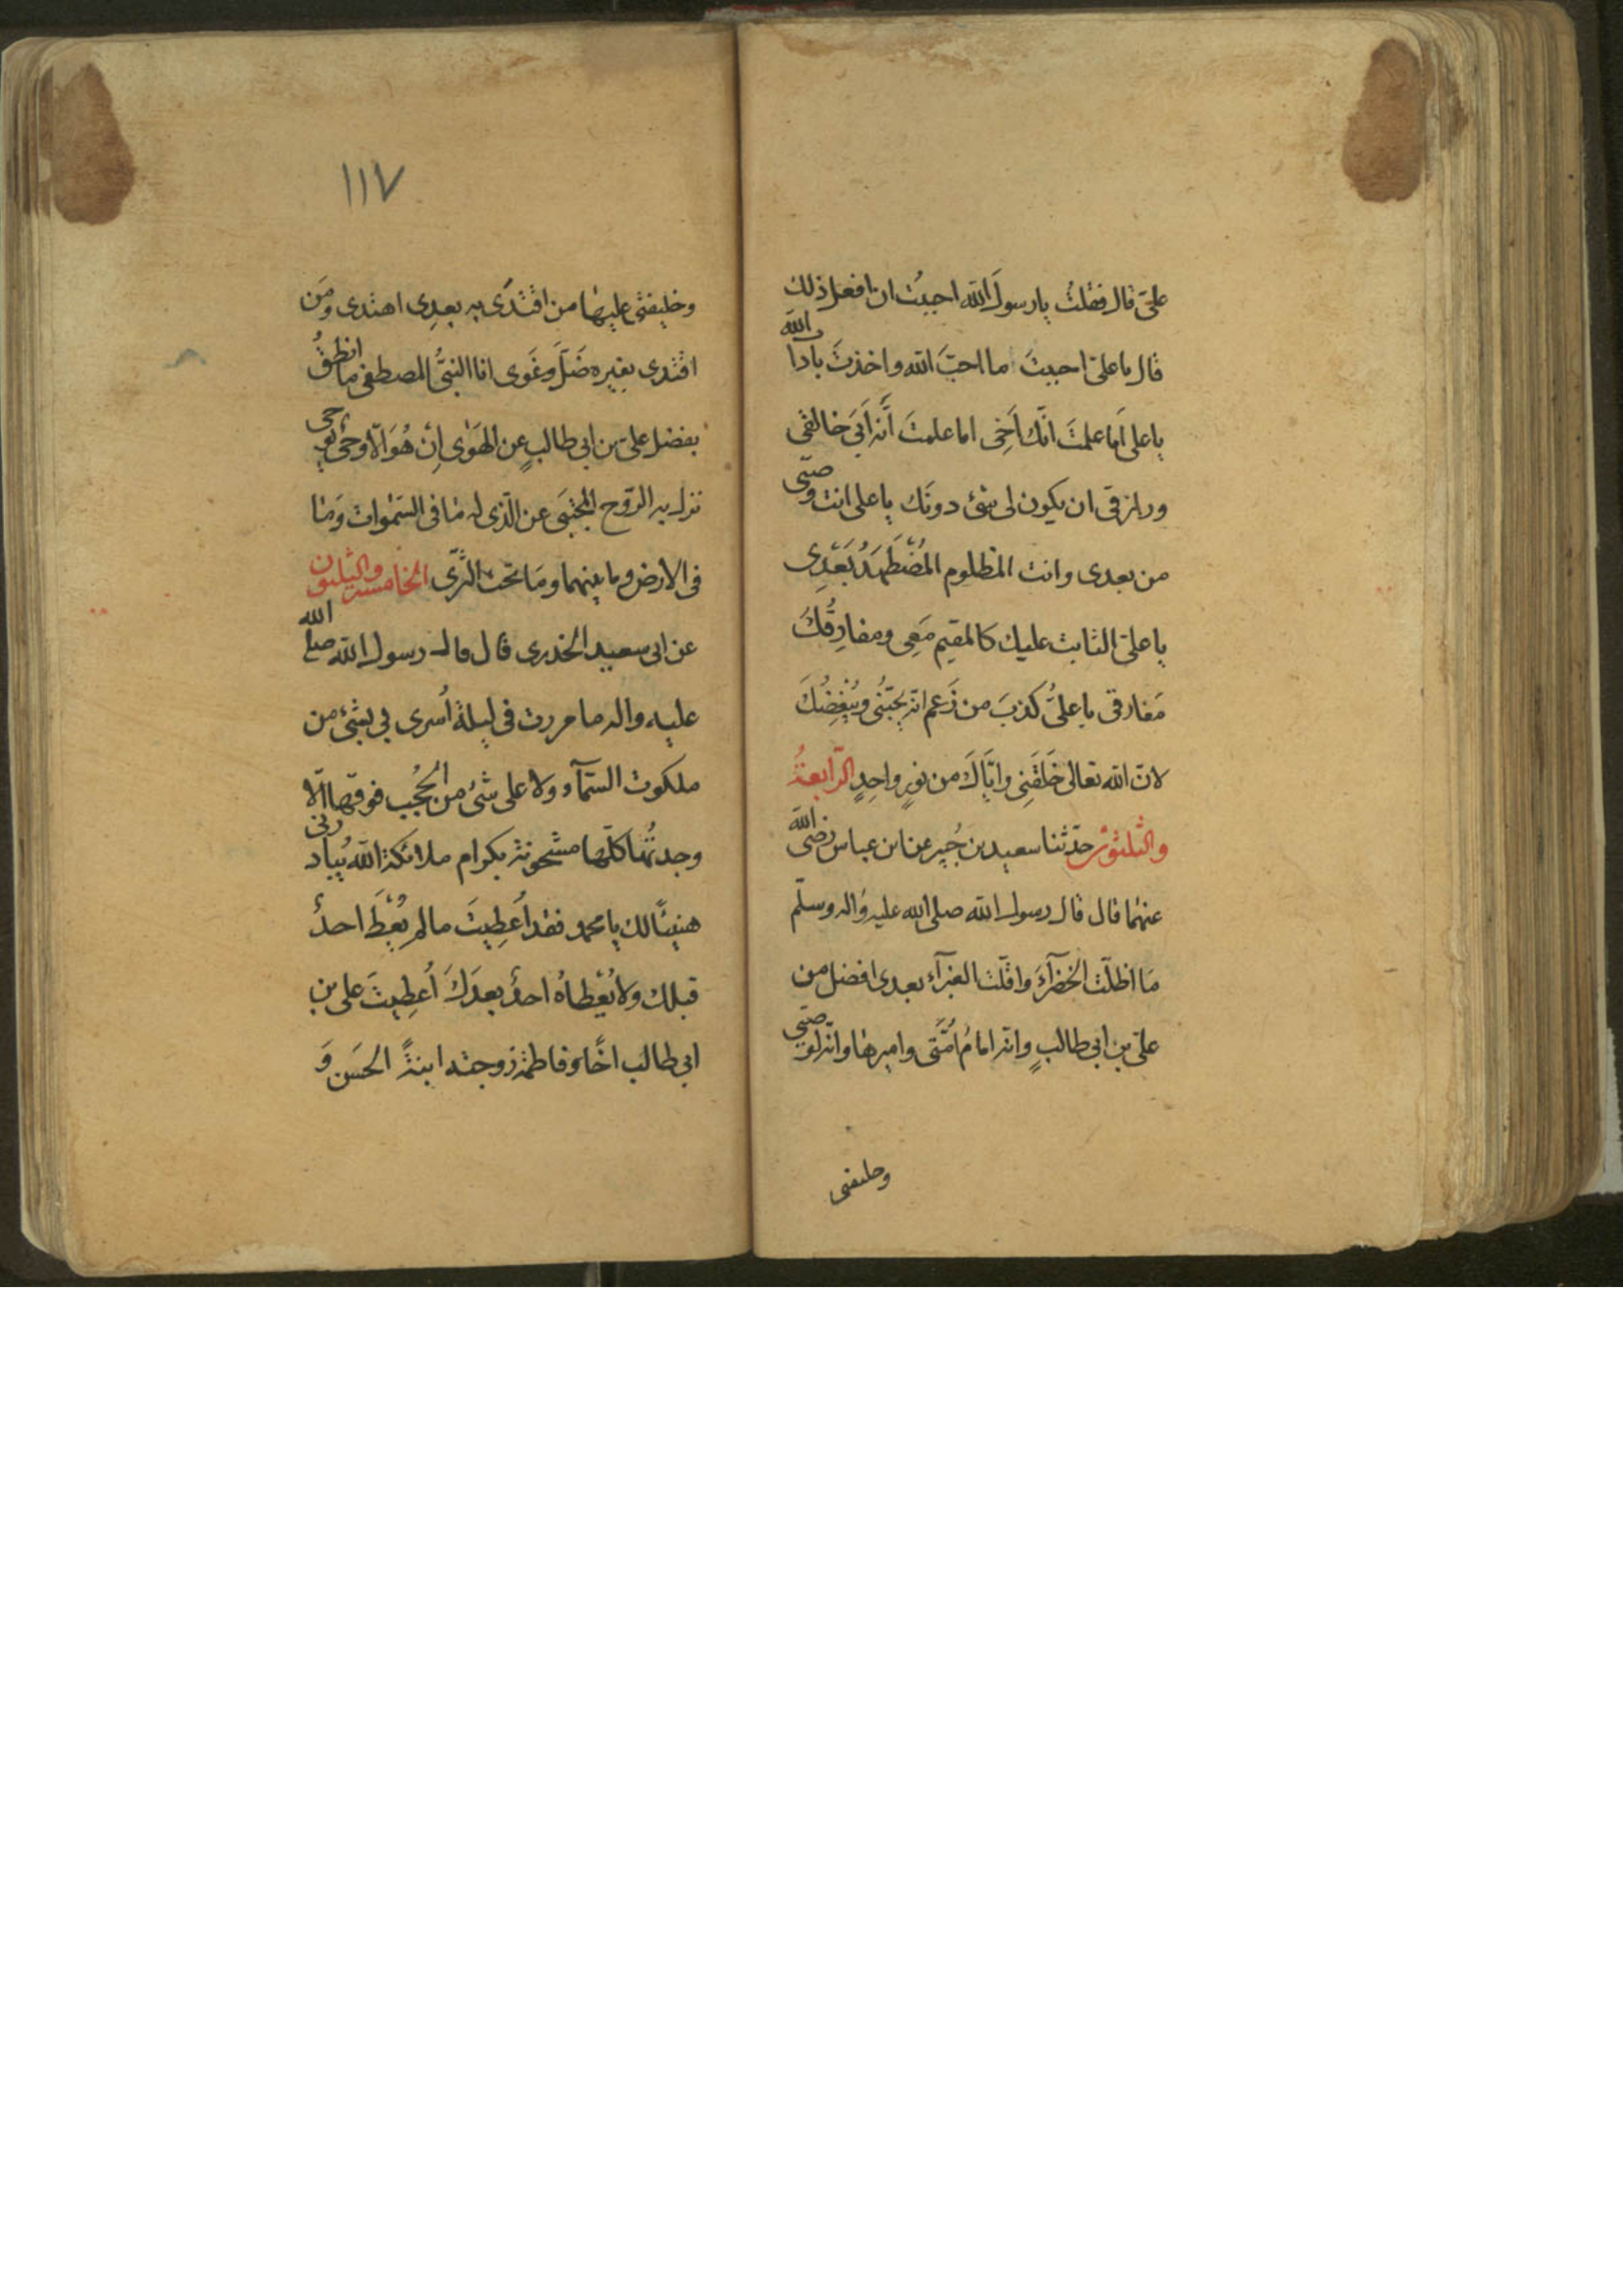 علیّ قال فقلتُ یا رسولَ الله احببتُ ان افعل ذلك
قال یا علیّ احببتَ ما احبّ الله واخذتَ بآداب الله
یا علی اَما علمتَ انّك اَخی اما علمتَ أنّه اَبَی خالقی
ورازقی ان یکون لی سرّ دونَك یا علی انت وصیّی
من بعدی وانت المظلوم المُضْطَهَدُ بَعْدِی
یا علیّ الثابت علیك کالمقیم مَعِی ومفارِقُكَ
مفارقی یا علیُّ کَذبَ من زَعم انّه یحبّنُی ویُبْغِضُكَ
لانّ الله تعالی خَلَقَنِی وایّاكَ من نورٍ واحِدٍ الرّابعةُ
والثلثون حدّثنا سعید بن جُبیر عن ابن عباس رضی الله
عنهما قال قال رسول الله صلی الله علیه واله وسلّم
مَا اظلّت الخضرآءَ واقلّت الغبرآء بعدی افضل من
علیّ بن ابی طالبٍ وانّه امامُ اُمّتی وامیرها وانّه لوصیّی
وخلیفتی
١١٧
وخلیفتی علیها من اقْتدَی به بعدِی اهتدی ومَن
اقتدی بغیره ضَلّ وغَوی انا النبیُّ المصطفی ما انطقُ
بفضل علی بن ابی طالبٍ عن الهَوٰی اِنْ هُوَ الّا وحیٌ یوحی
نزل به الرّوح المجتبَی عن الّذی له مٰا فی السّمٰوات وَمٰا
فی الارض وما بینهما ومَا تحت الثّری الخامسة والثلثون
عن ابی سعید الخدری قال قال رسول الله صلی الله
علیه واله ما مررت فی لیلة اُسری بی بشیء من
ملکوت السّمآء ولا علی شیء من الحُجُب فوقها الّا
وجدتُها کلّها مشحونة بکرام ملائکة الله یُنادونی
هنیئًا لك یا محمد فقد اُعطِیتَ ما لم یُعْطَ احدٌ
قبلك ولا یُعْطاهُ احدٌ بعدَكَ اُعطِیتَ علی بن
ابی طالب اخًا وفاطمة زوجته ابنةً الحَسَن وَ